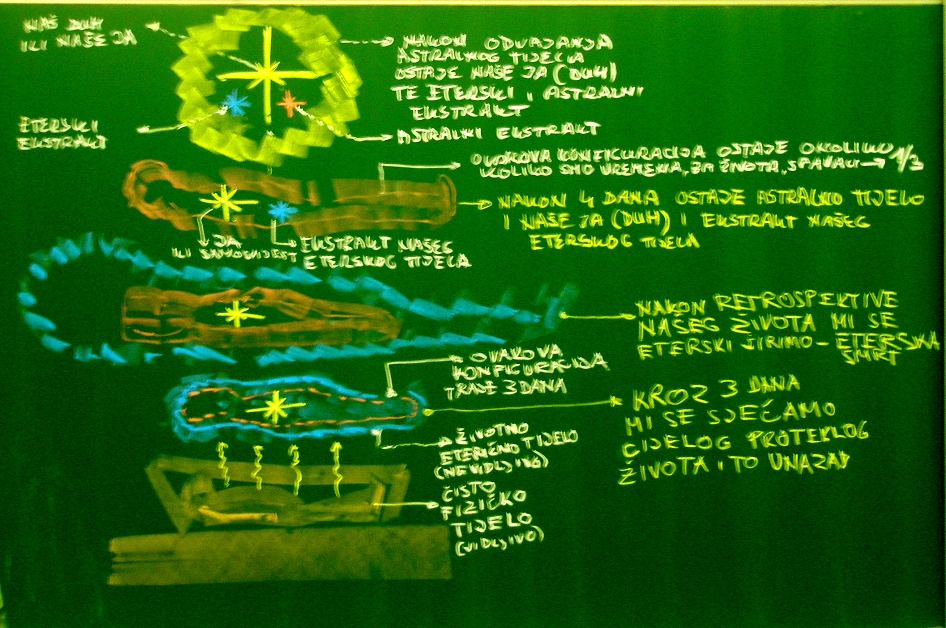 NAŠ DUH
ILI NAŠE JA
NAKON ODVAJANJA
ASTRALNOG TIJELA
OSTAJE NAŠE JA (DUH)
TE ETERSKI I ASTRALNI
EKSTRAKT
ETERSKI
EKSTRAKT
ASTRALNI EKSTRAKT
OVAKOVA KONFIGURACIJA OSTAJE OKOLIKO
KOLIKO SMO VREMENA, ZA ŽIVOTA, SPAVALI → 1/3
NAKON 4 DANA OSTAJE ASTRALNO TIJELO
I NAŠE JA (DUH) I EKSTRAKT NAŠEG
ETERSKOG TIJELA
JA
ILI SAMOSVIJEST
EKSTRAKT NAŠEG
ETERSKOG TIJELA
NAKON RETROSPEKTIVE
NAŠEG ŽIVOTA MI SE
ETERSKI ŠIRIMO - ETERSKA
SMRT
OVAKOVA
KONFIGURACIJA
TRAJE 3 DANA
KROZ 3 DANA
MI SE SJEĆAMO
CIJELOG PROTEKLOG
ŽIVOTA I TO UNAZAD
ŽIVOTNO
ETERIČNO TIJELO
(NEVIDLJIVO)
ČISTO
FIZIČKO
TIJELO
(VIDLJIVO)